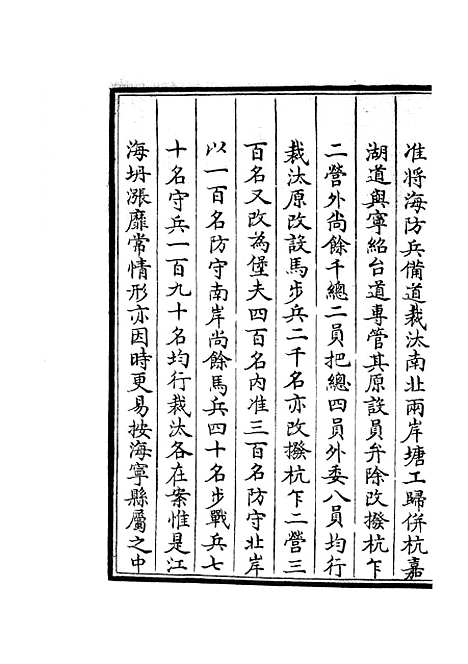 准將海防兵備道裁汰南北兩岸塘工歸併杭嘉
湖道與寧紹台道專管其原設員弁除改撥杭乍
二營外尚餘千總二員把總四員外委八員均行
裁汰原改設馬步兵二千名亦改撥杭乍二營三
百名又改為堡夫四百名內准三百名防守北岸
以一百名防守南岸尚餘馬兵四十名步戰兵七
十名守兵一百九十名均行裁汰各在案惟是江
海坍漲靡常情形亦因時更易按海寧縣屬之中